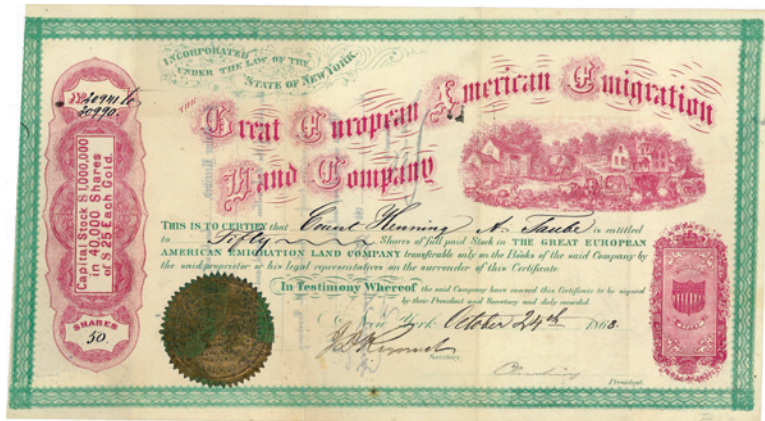 INCORPORATED
UNDER THE LAW, OF THE
STATE OF NEW YORK
THE
Great European American Emigration
Land Company
No 20941 to
20990.
Capital Stock $ 1,000,000
in 40,000 Shares
of $ 25 Each Gold.
SHARES
50.
THIS IS TO CERTIFY that Count Henning A. Taube is entitled
to Fifty Shares of full paid Stock in THE GREAT EUROPEAN
AMERICAN EMIGRATION LAND COMPANY transferable only on the Books of the said Company by
the said proprietor or his legal representatives on the surrender of this Certificate
In Testimony Whereof the said Company have caused this Certificate to be signed
by their President and Secretary and duly recorded
New York October 24th 1868.
Secretary.
President.